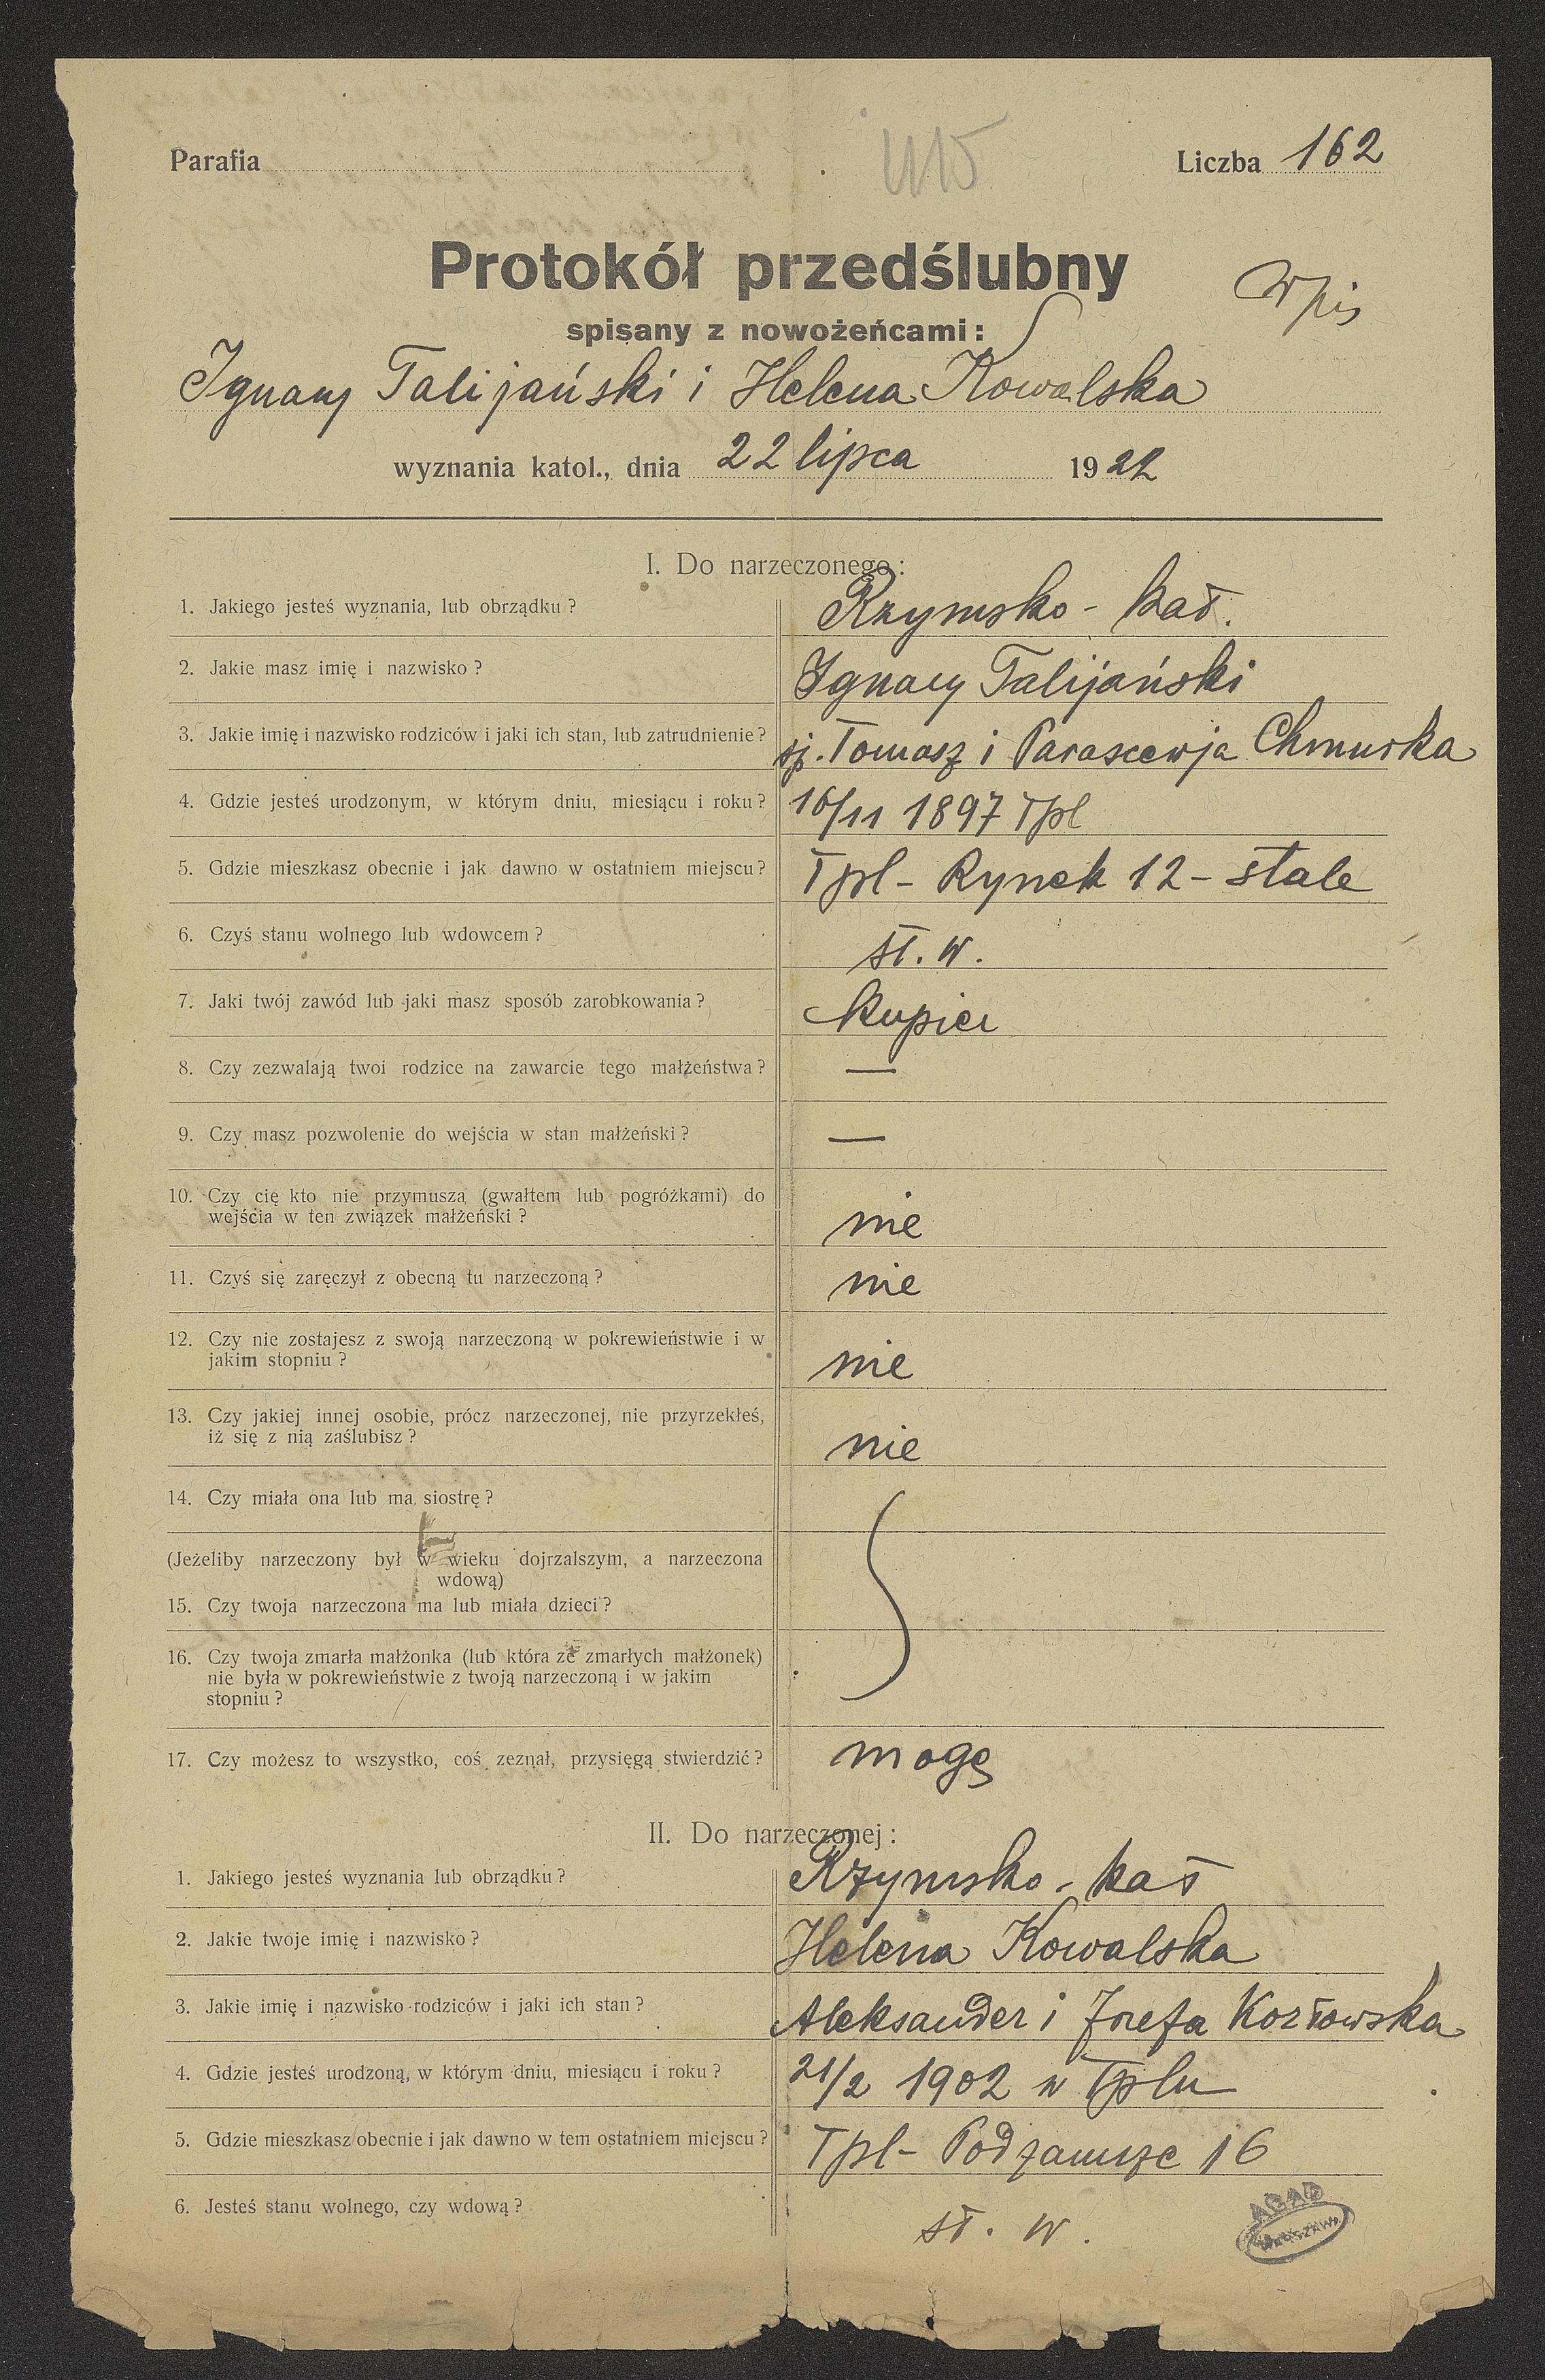 Parafia
Liczba 162
Protokół przedślubny
Wpis
spisany z nowożeńcami:
Ignacy Talijański i Helena Kowalska
wyznania katol., dnia 22 lipca 1922
I. Do narzeczonego:
1. Jakiego jesteś wyznania, lub obrządku? Rzymsko-kat.
2. Jakie masz imię i nazwisko? Ignacy Talijański
3. Jakie imię i nazwisko rodziców i jaki ich stan, lub zatrudnienie? Tomasz i Parascewja Chmurka
4. Gdzie jesteś urodzonym, w którym dniu, miesiącu i roku? 16/11 1897 Tpl
5. Gdzie mieszkasz obecnie i jak dawno w ostatniem miejscu? Tpl - Rynek 12 - stale
6. Czyś stanu wolnego lub wdowcem? st. w.
7. Jaki twój zawód lub jaki masz sposób zarobkowania? Kupiec
8. Czy zezwalają twoi rodzice na zawarcie tego małżeństwa? —
9. Czy masz pozwolenie do wejścia w stan małżeński? —
10. Czy cię kto nie przymusza (gwałtem lub pogróżkami) do
wejścia w ten związek małżeński? nie
11. Czyś się zaręczył z obecną tu narzeczoną? nie
12. Czy nie zostajesz z swoją narzeczoną w pokrewieństwie i w
jakim stopniu? nie
13. Czy jakiej innej osobie, prócz narzeczonej, nie przyrzekłeś,
iż się z nią zaślubisz? nie
14. Czy miała ona lub ma siostrę?
(Jeżeliby narzeczony był w wieku dojrzalszym, a narzeczona
wdową)
15. Czy twoja narzeczona ma lub miała dzieci?
16. Czy twoja zmarła małżonka (lub która ze zmarłych małżonek)
nie była w pokrewieństwie z twoją narzeczoną i w jakim
stopniu?
17. Czy możesz to wszystko, coś zeznał, przysięgą stwierdzić? mogę
II. Do narzeczonej:
1. Jakiego jesteś wyznania lub obrządku? Rzymsko-kat
2. Jakie twoje imię i nazwisko? Helena Kowalska
3. Jakie imię i nazwisko rodziców i jaki ich stan? Aleksander i Józefa Kozłowska
4. Gdzie jesteś urodzoną, w którym dniu, miesiącu i roku? 21/2 1902 w Tplu
5. Gdzie mieszkasz obecnie i jak dawno w tem ostatniem miejscu? Tpl - Podzamcze 16
6. Jesteś stanu wolnego, czy wdową? st. w.
AGAD
WARSZAWA